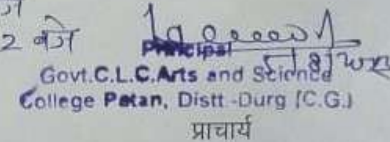 2 बजे
Principal
Govt.C.L.C.Arts and Science
College Patan, Distt.-Durg (C.G.)
प्राचार्य